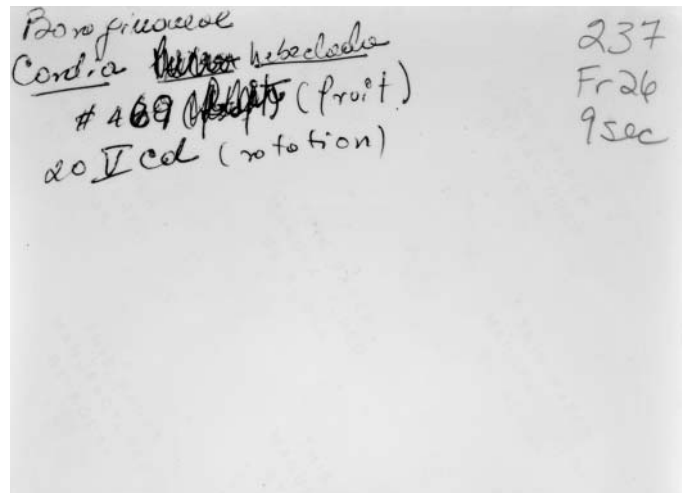 Boraginaceae
Cordia hebeclada
# 469 (fruit)
20 V cd (rotation)
237
Fr 26
9 sec